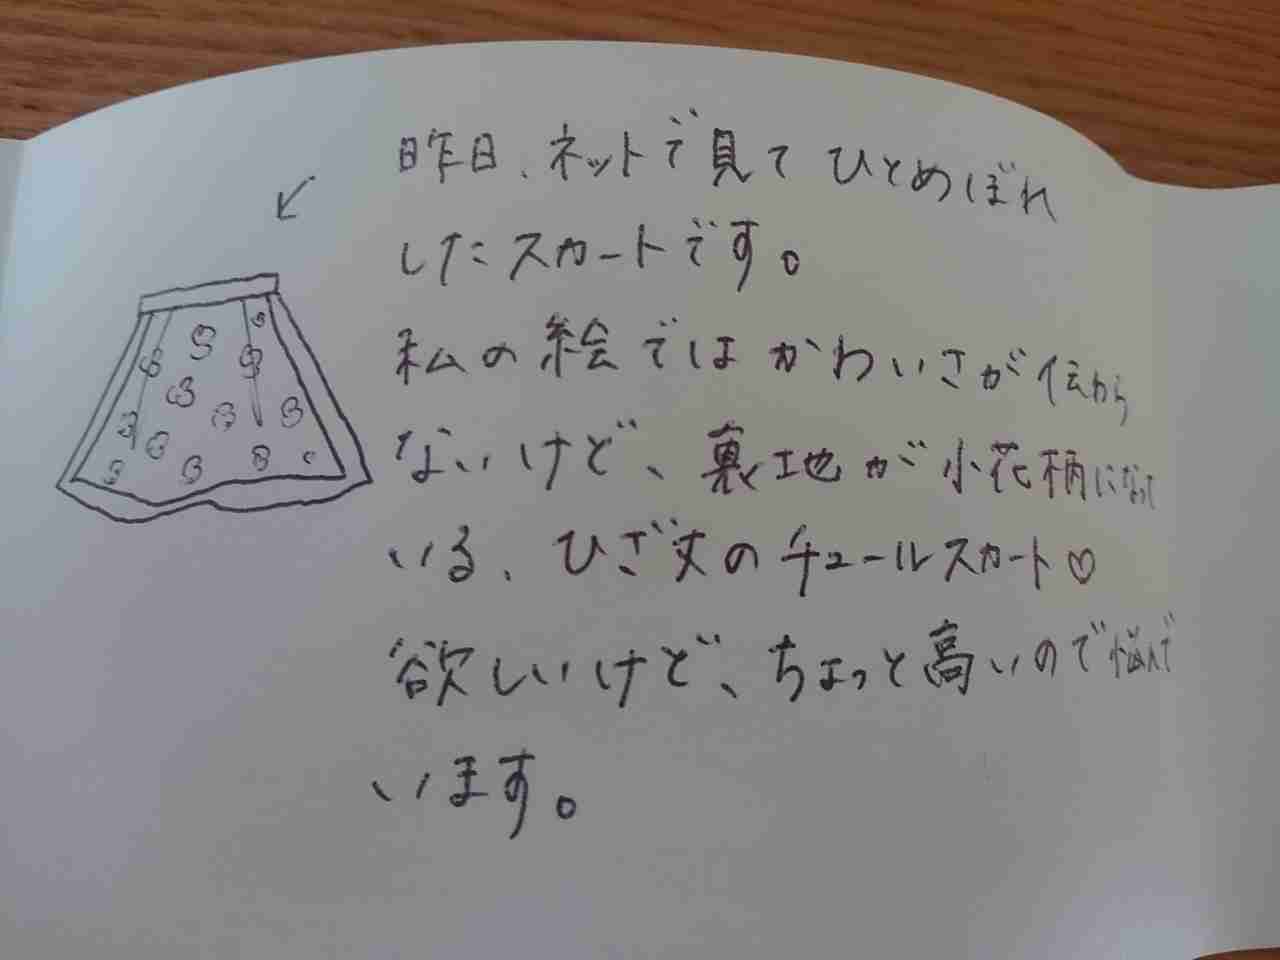 昨日、ネットで見てひとめぼれ
したスカートです。
私の絵ではかわいさが伝わら
ないけど、裏地が小花柄になって
いる、ひざ丈のチュールスカート♡
欲しいけど、ちょっと高いので悩んで
います。